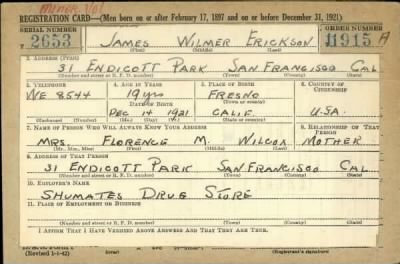 Minor. Vol
REGISTRATION CARD—(Men born on or after February 17, 1897 and on or before December 31, 1921)
SERIAL NUMBER 1. NAME (Print) ORDER NUMBER
V 2653 JAMES WILMER ERICKSON 11915 A
(First) (Middle) (Last)
2. ADDRESS (Print)
31 ENDICOTT PARK SAN FRANCISCO CAL
(Number and street or R. F. D. number) (Town) (County) (State)
3. TELEPHONE 4. AGE IN YEARS 5. PLACE OF BIRTH 6. COUNTRY OF CITIZENSHIP
WE 8544 19 yrs FRESNO
DATE OF BIRTH (Town or county)
DEC 14 1921 CALIF. U.S.A.
(Exchange) (Number) (Mo.) (Day) (Yr.) (State or country)
7. NAME OF PERSON WHO WILL ALWAYS KNOW YOUR ADDRESS 8. RELATIONSHIP OF THAT PERSON
MRS. FLORENCE M. WILCOX MOTHER
(Mr., Mrs., Miss) (First) (Middle) (Last)
9. ADDRESS OF THAT PERSON
31 ENDICOTT PARK SAN FRANCISCO CAL
(Number and street or R. F. D. number) (Town) (County) (State)
10. EMPLOYER'S NAME
SHUMATES DRUG STORE
11. PLACE OF EMPLOYMENT OR BUSINESS
(Number and street or R. F. D. number) (Town) (County) (State)
I AFFIRM THAT I HAVE VERIFIED ABOVE ANSWERS AND THAT THEY ARE TRUE.
(Revised 1-1-42) (over) (Registrant's signature)